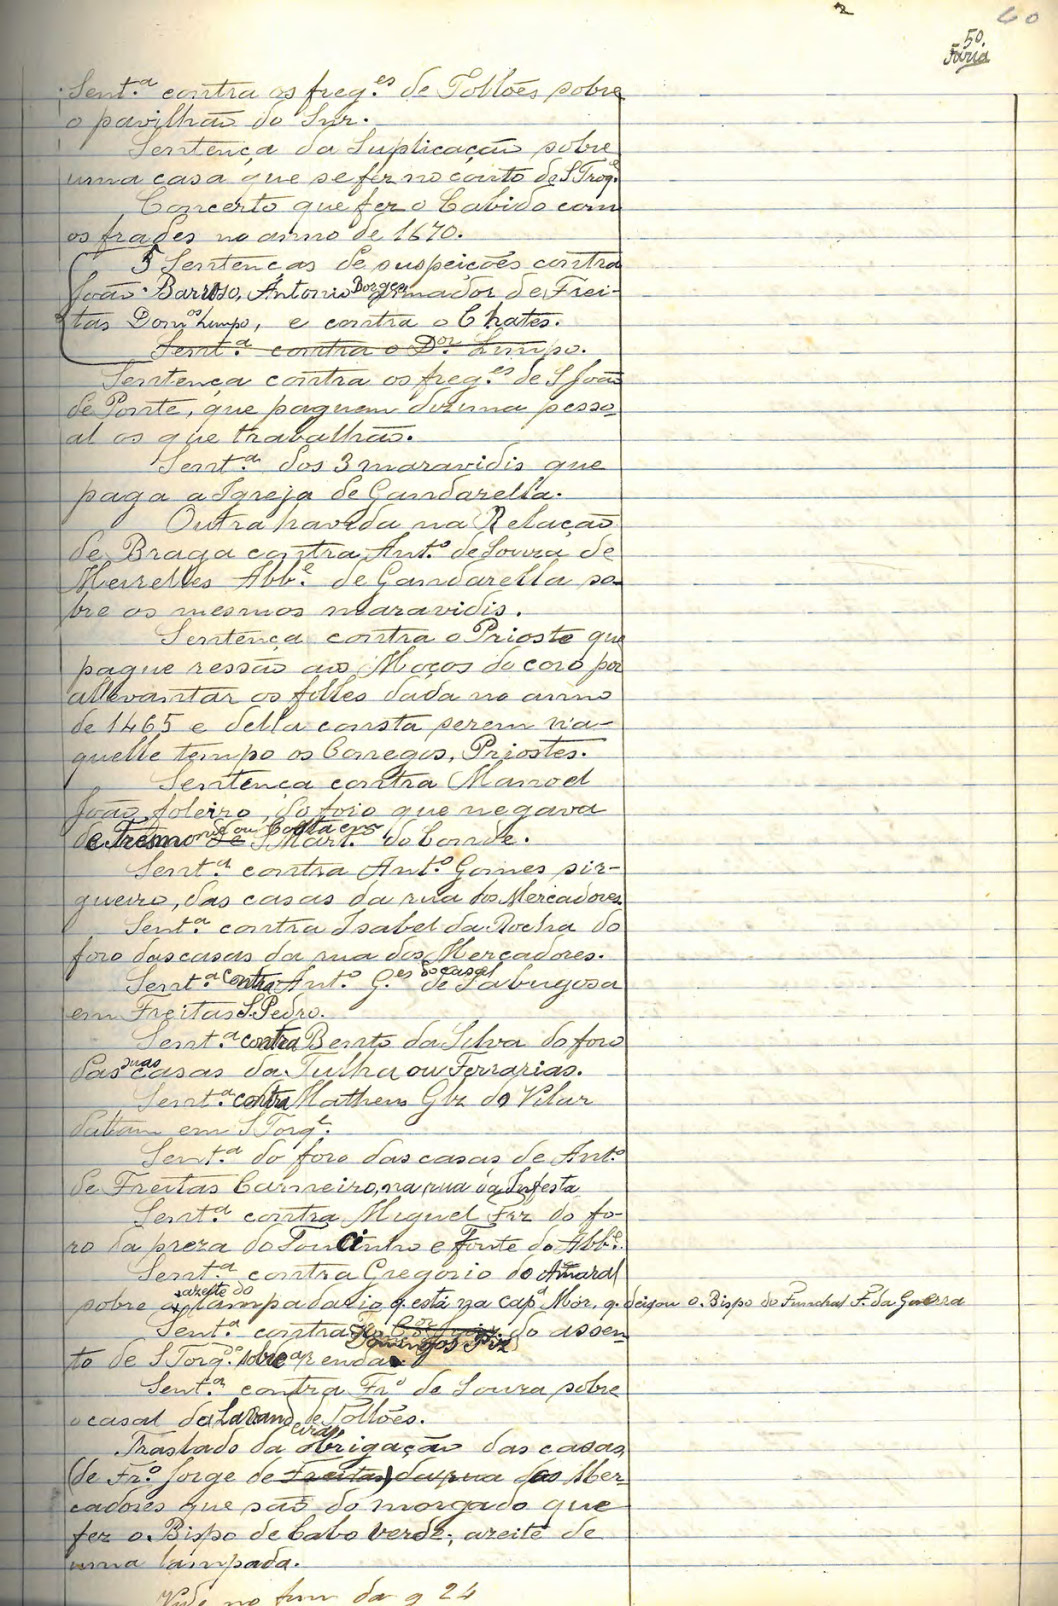 60
50.
Faria
Sent.ª contra os freg.es de Tollões sobre
o pavilhão do Snr.
Sentença da Suplicação sobre
uma casa que se fez no couto de S Torq.e
Concerto que fez o Cabido com
os frades no anno de 1670.
5 Sentenças de suspeições contra
João Barroso, Antonio Borges, Amador de Frei-
tas Dom.os Lumpo, e contra o Chates.
Sent.ª contra o Dor. Limpo.
Sentença contra os freg.es de S João
de Ponte, que paguem dizima pesso-
al os que trabalhão.
Sent.ª dos 3 maravidis que
paga a Igreja de Gandarella.
Outra havida na Relação
de Braga contra Ant.º de Souza de
Meirelles Abb.e de Gandarella so-
bre os mesmos maravidis.
Sentença contra o Prioste que
pague ressão aos Moços do coro por
allevantar os folles dada no anno
de 1465 e della consta serem n'a-
quelle tempo os Conegos, Priostes.
Sentença contra Manoel
João foleiro, do foro que negava
de S Mart.º do Conde.
Sent.ª contra Ant.º Gomes sir-
gueiro, das casas da rua dos Mercadores
Sent.ª contra Isabel da Rocha do
foro das casas da rua dos Mercadores.
Sent.ª contra Ant.º G.es do casal de Sabugosa
em Freitas S. Pedro.
Sent.ª contra Bento da Silva do foro
das suas casas da Tulha ou Ferrarias.
Sent.ª contra Matheus Glz do Vilar
em S Torq.e
Sent.ª do foro das casas de Ant.º
de Freitas Carneiro, na rua da Infesta
Sent.ª contra Miguel Frz do fo-
ro da preza do Toucinho e Fonte do Abb.e
Sent.ª contra Gregorio do Amaral
sobre azeite do lampadario q. está na cap.ª Mór, q. deixou o Bispo do Funchal F. da Guerra
Sent.ª contra Domingos Frz do assen-
to de S Torq.e sobre a renda.
Sent.ª contra Fr.º de Souza sobre
o casal da Lavandeira de Tollões.
Traslado da obrigação das casas
(de Fr.º Jorge de Freitas) da rua dos Mer-
cadores que são do morgado que
fez o Bispo de Cabo Verde, azeite de
uma lampada.
Vide no fim da q 24